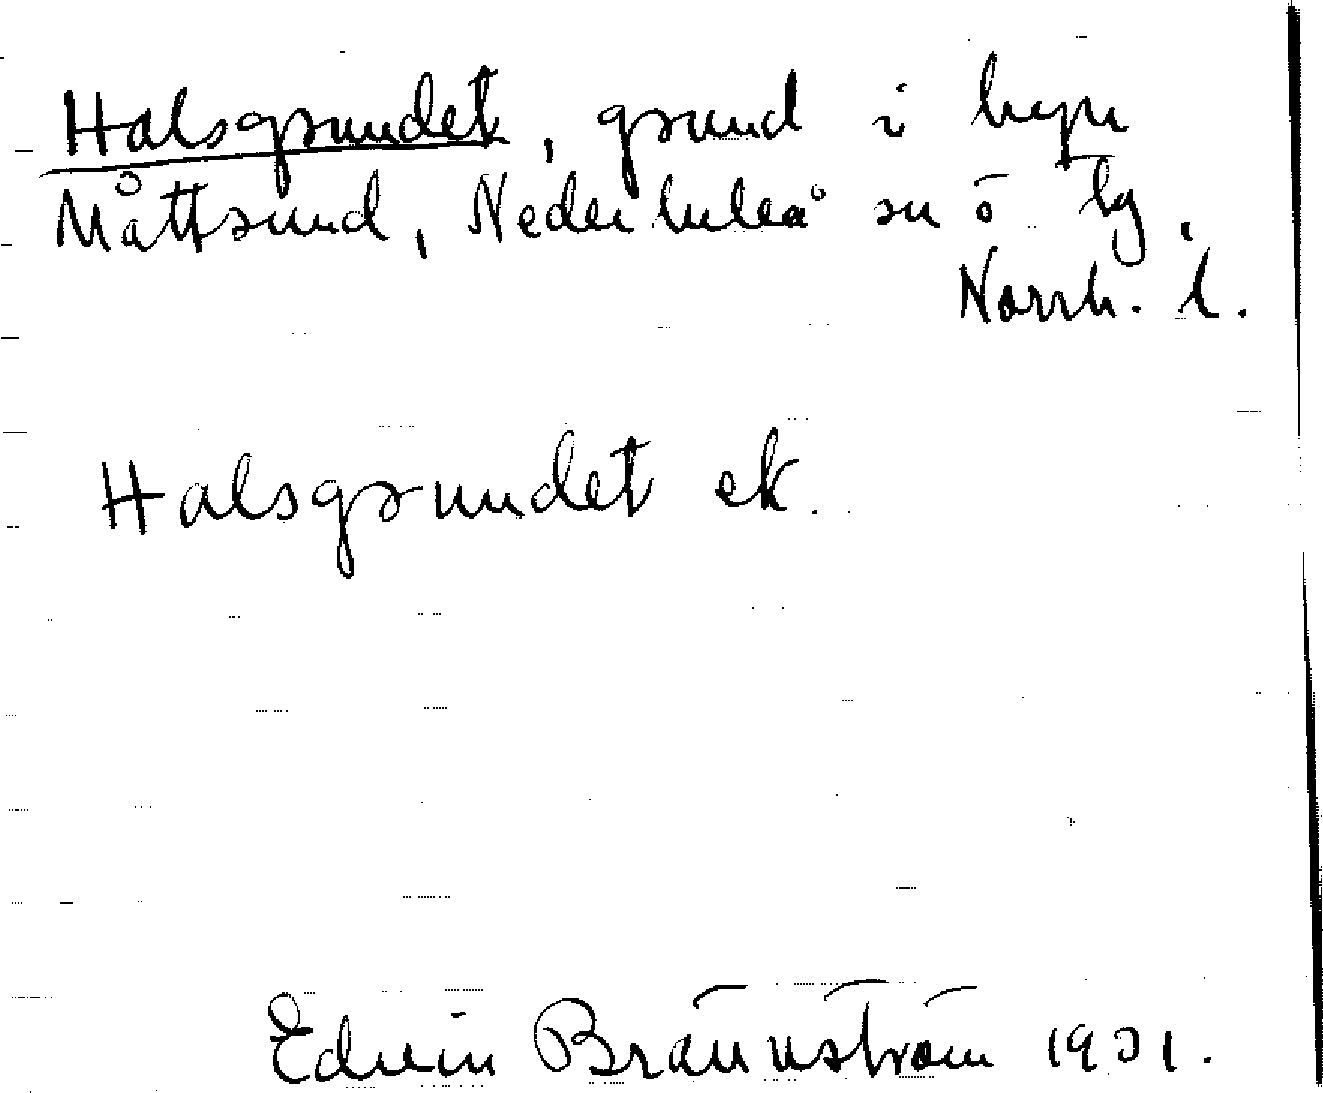 Halsgrundet, grund i byn
Måttsund, Nederluleå sn o tg,
Norrb. l.
Halsgrundet ek.
Edvin Brännström 1931.